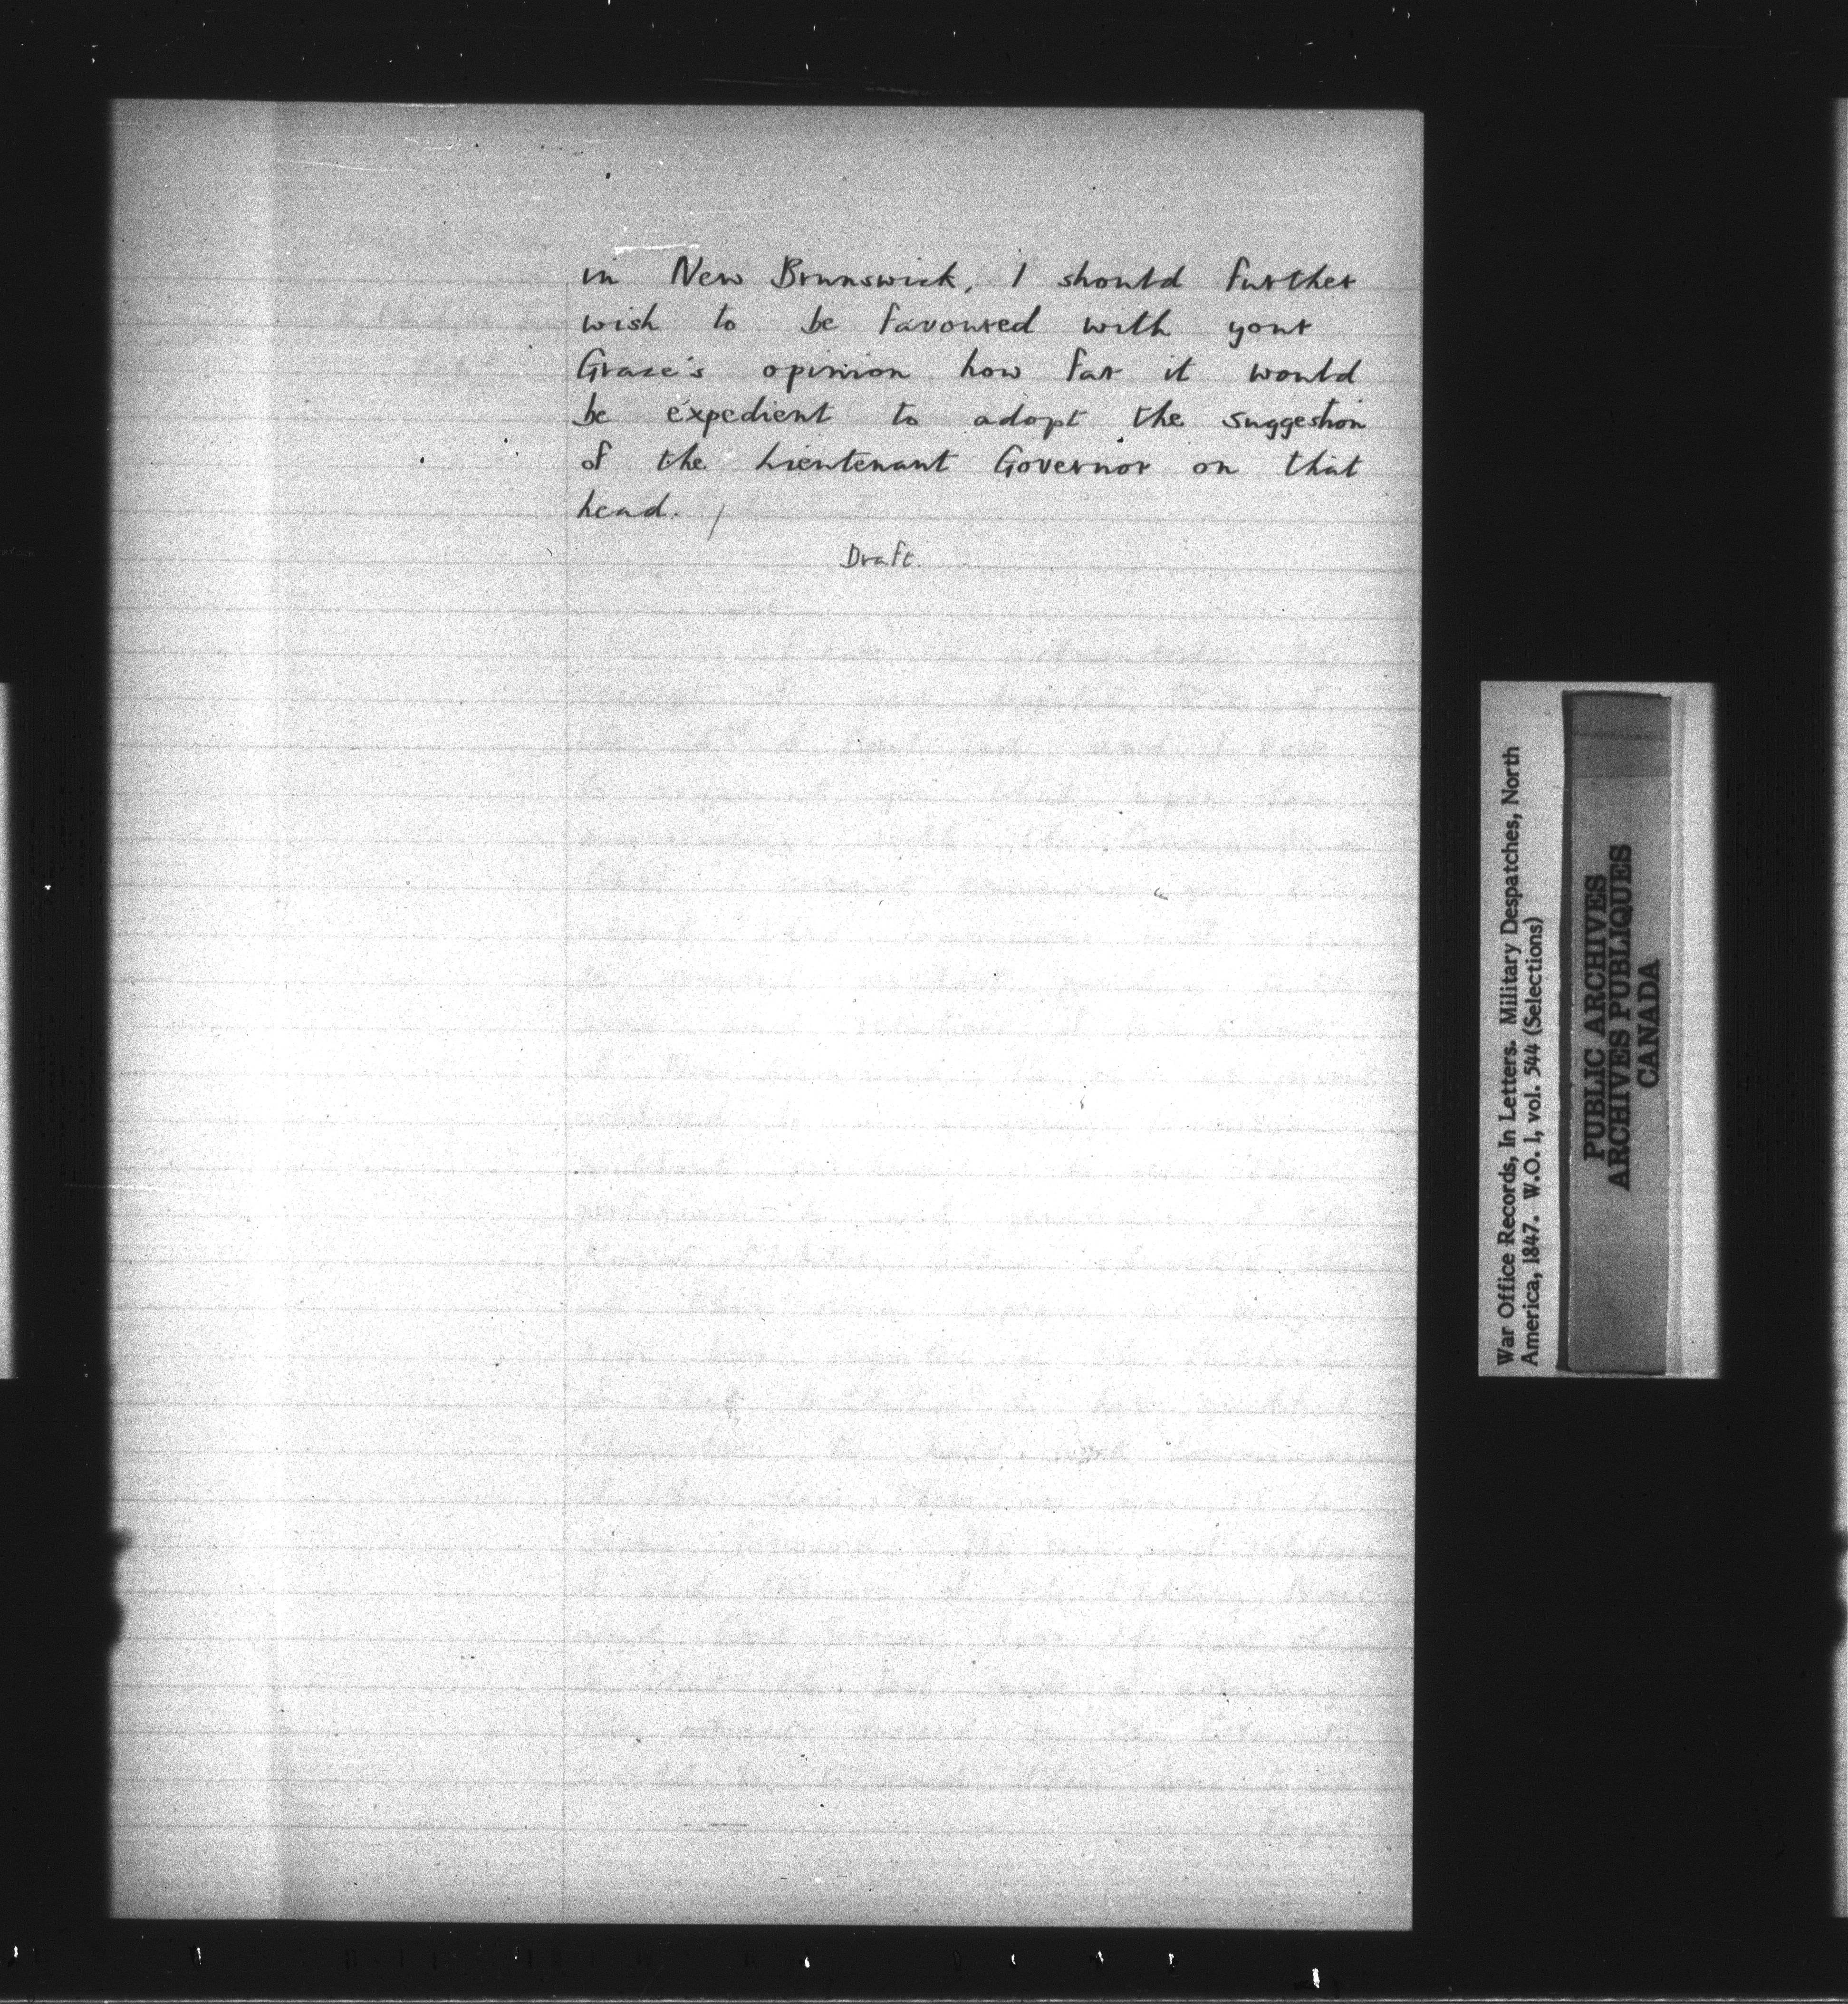 in New Brunswick, I should further
wish to be favoured with your
Grace's opinion how far it would
be expedient to adopt the suggestion
of the Lieutenant Governor on that
head. /
Draft.
War Office Records, In Letters. Military Despatches, North
America, 1847. W.O. 1, vol. 544 (Selections)
PUBLIC ARCHIVES
ARCHIVES PUBLIQUES
CANADA